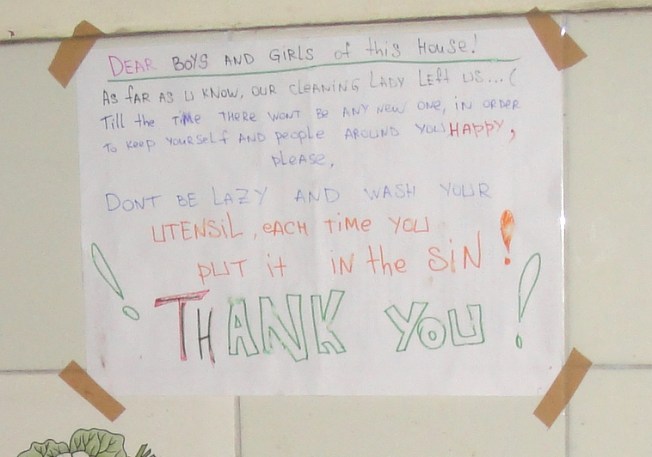 DEAR BOYS AND GIRLS of this House!
As fAR AS U KNOW, OUR cLEANiNG LADY Left US...(
Till the TiMe THERE WONT BE ANY NEW ONE, iN ORDER
To Keep YOURSELf AND people AROUND YOU HAPPY,
please,
DONT BE LAZY AND WASH YOUR
UTENSiL, eACH TiME YOU
PUT it IN the SiN!
! THANK YOU!